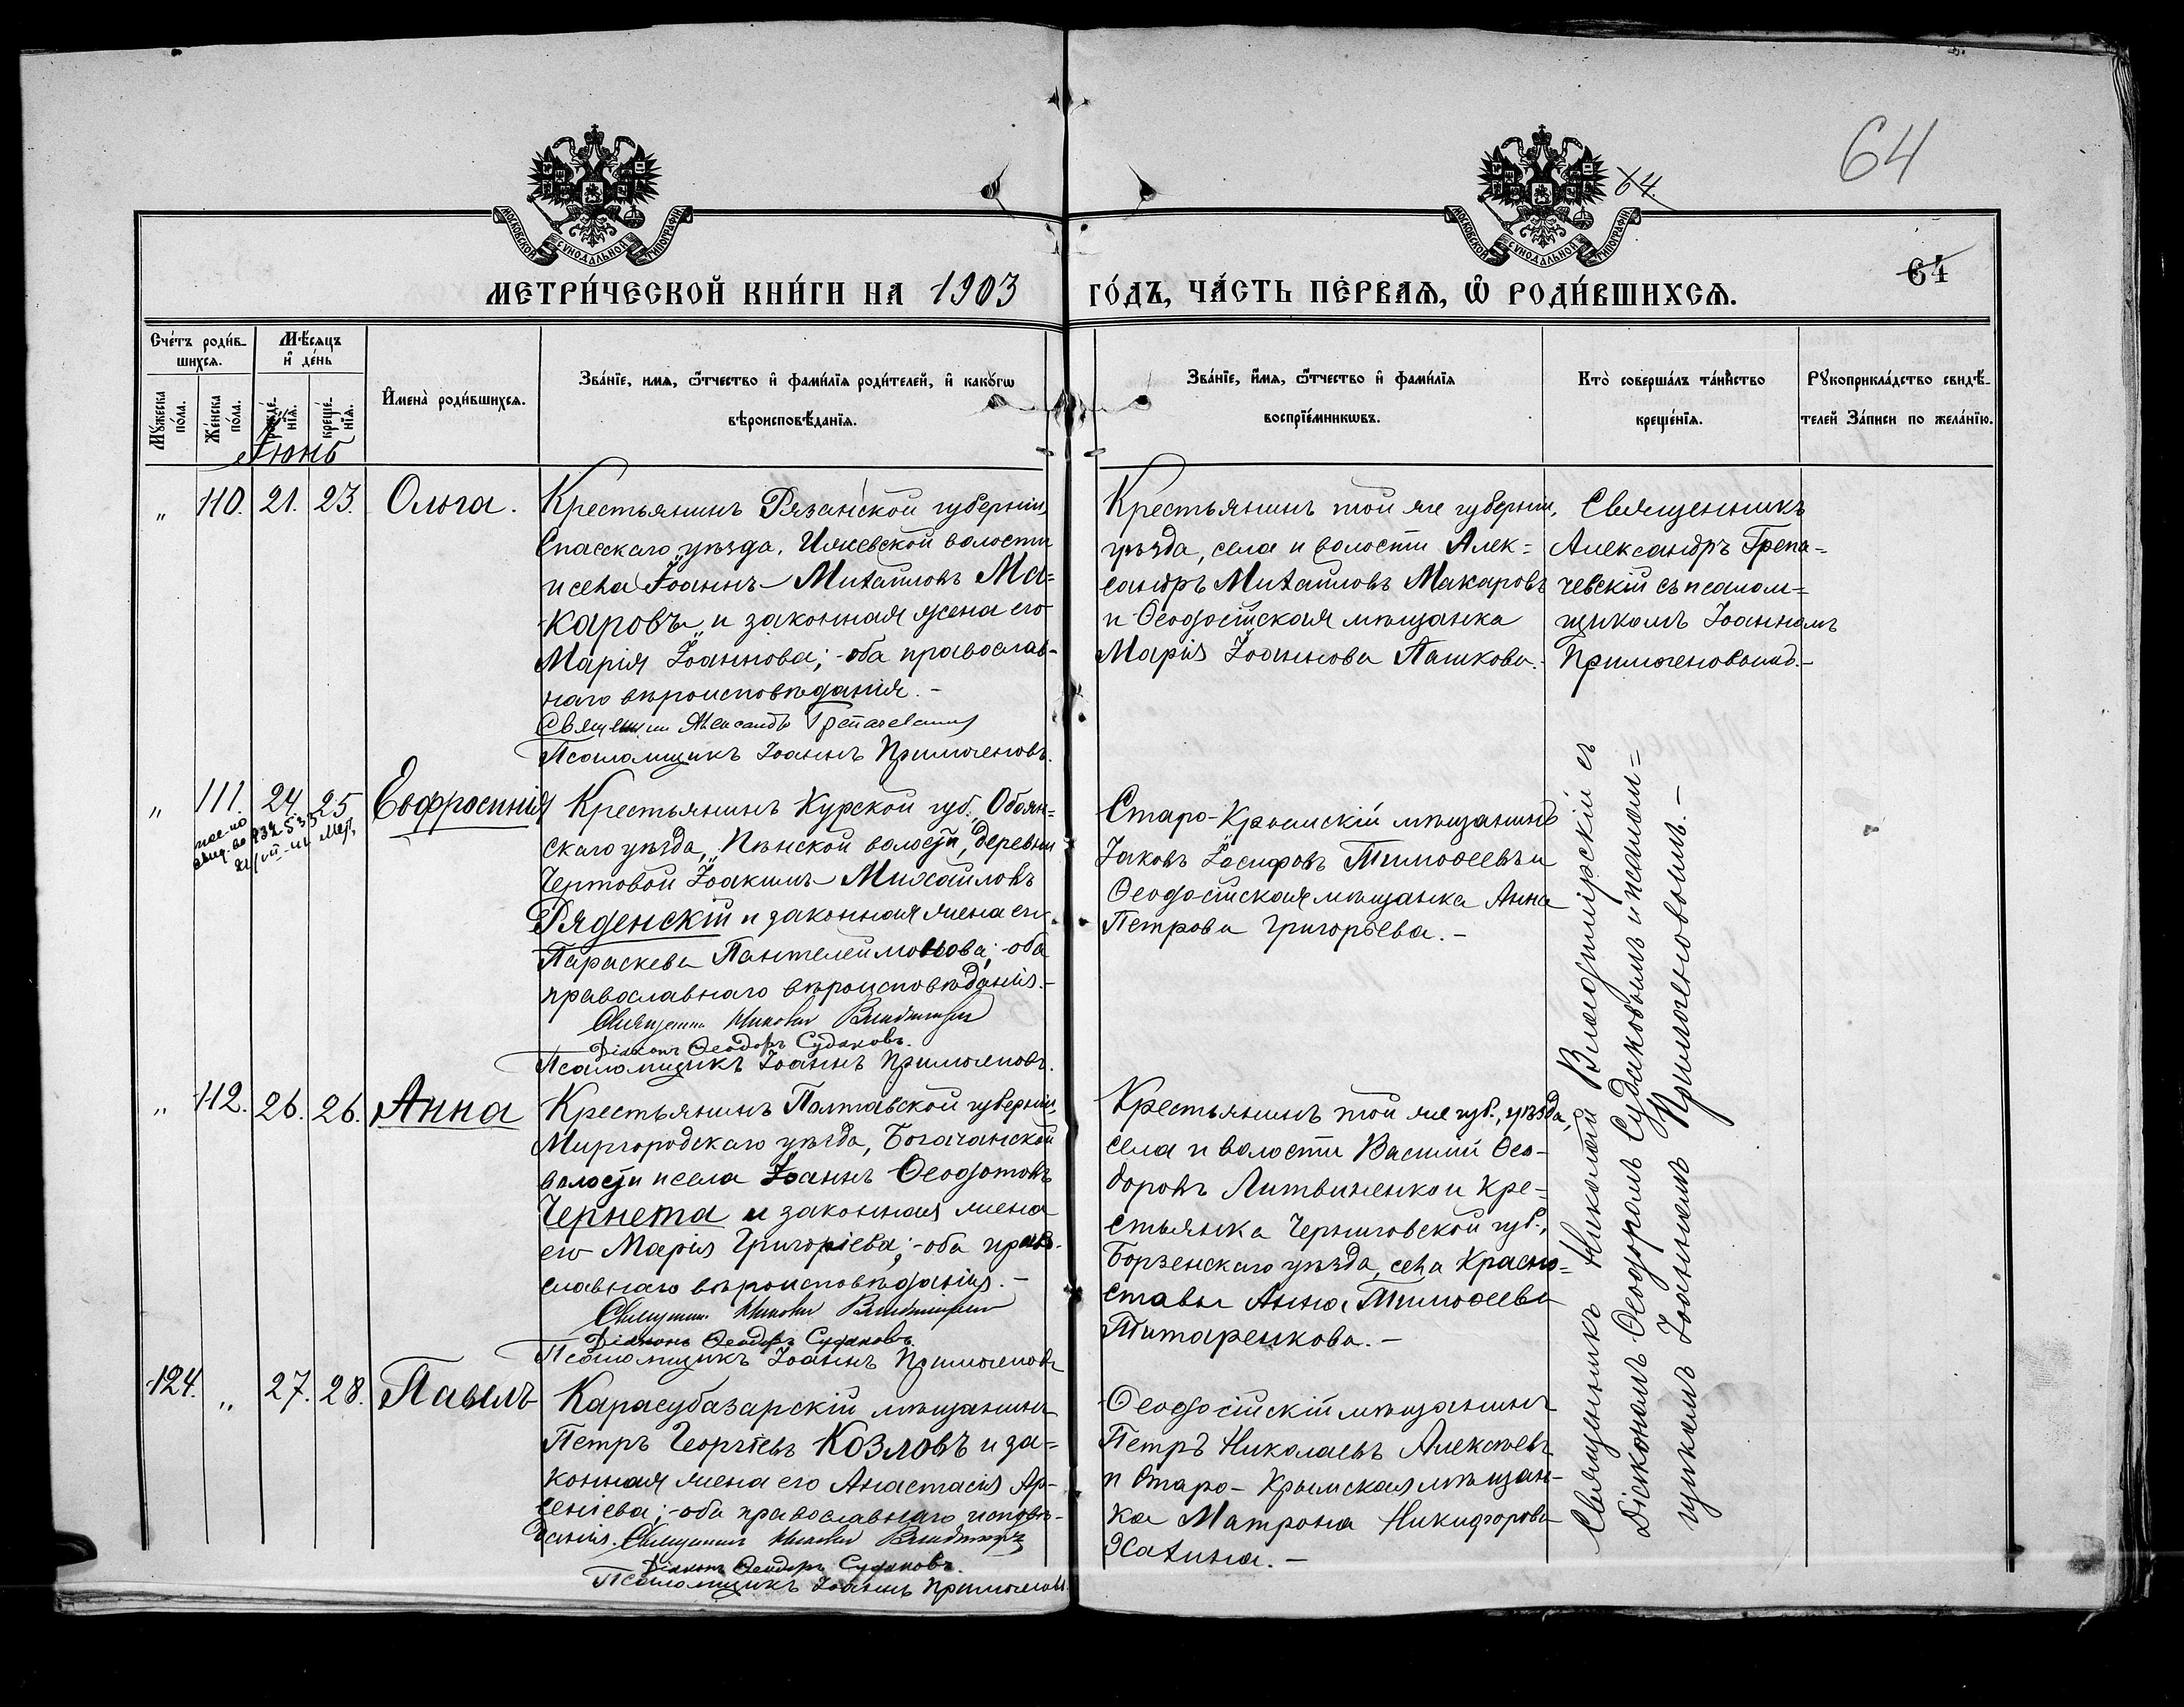 64
64.
64
МОСКОВСКОЙ СѴНОДАЛЬНОЙ ТИПОГРАФІИ
МОСКОВСКОЙ СѴНОДАЛЬНОЙ ТИПОГРАФІИ
МЕТРИ́ЧЕСКОЙ КНИ́ГИ НА 1903 ГО́ДЪ, ЧА́СТЬ ПЕ́РВАѦ, Ѡ҆ РОДИ́ВШИХСѦ.
Сче́тъ роди́в-
шихсѧ.
Мѣ́сяцъ
и҆ де́нь
Мꙋ́жеска
по́ла.
Же́нска
по́ла.
рожде́-
нїѧ.
креще́-
нїѧ.
И҆мена̀ роди́вшихсѧ.
Зва́нїе, имѧ, ѻ҆́тчество и҆ фами́лїѧ роди́телей, и҆ како́гѡ
вѣроисповѣ́данїѧ.
Зва́нїе, и҆́мѧ, ѻ҆́тчество и҆ фами́лїѧ
воспрїе́мникѡвъ.
Кто̀ соверша́лъ та́инство
креще́нїѧ.
Рꙋкоприкла́дство свидѣ́-
телей За́писи по жела́нїю.
Іюнь
„ 110. 21. 23. Ольга.
Крестьянинъ Рязанской губерніи,
Спасскаго уѣзда, Ижевской волости
и села Іоаннъ Михайловъ Ма=
каровъ и законная жена его
Марія Іоаннова; - оба православ-
наго вѣроисповѣданія. -
Священникъ Александръ Трепачевскій
Псаломщикъ Іоаннъ Примоченовъ.
Крестьянинъ той же губерніи,
уѣзда, села и волости Алек=
сандръ Михайловъ Макаровъ
и Ѳеодосійская мѣщанка
Марія Іоаннова Пашкова. -
Священникъ
Александръ Трепа=
чевскій съ псалом=
щикомъ Іоанномъ
Примоченовымъ. -
„ 111. 24. 25 Евфросинія
Крестьянинъ Курской губ. Обоян-
скаго уѣзда, Пѣнской волости, деревни
Чертовой Іоакимъ Михайловъ
Ряденскій и законная жена его
Параскева Пантелеймонова; - оба
православнаго вѣроисповѣданія. -
Священникъ Николай Владимірскій
Діаконъ Ѳеодоръ Судаковъ.
Псаломщикъ Іоаннъ Примоченовъ.
Старо-Крымскій мѣщанинъ
Іаковъ Іосифовъ Тимоѳеевъ и
Ѳеодосійская мѣщанка Анна
Петрова Григорьева. -
„ 112. 26. 26. Анна
Крестьянинъ Полтавской губерніи,
Миргородскаго уѣзда, Богачанской
волости и села Іоаннъ Ѳеодотовъ
Чернета и законная жена
его Марія Григоріева; - оба право-
славнаго вѣроисповѣданія. -
Священникъ Николай Владимірскій
Діаконъ Ѳеодоръ Судаковъ
Псаломщикъ Іоаннъ Примоченовъ
Крестьянинъ той же губ., уѣзда,
села и волости Василій Ѳео-
доровъ Литвиненко и кре=
стьянка Черниговской губ.,
Борзенскаго уѣзда, села Красно=
ставы Анна Тимоѳеева
Титаренкова. -
124. „ 27. 28. Павелъ
Карасубазарскій мѣщанинъ
Петръ Георгіевъ Козловъ и за=
конная жена его Анастасія Ар-
сеніева; - оба православнаго исповѣ-
данія. Священникъ Николай Владимірскій
Діаконъ Ѳеодоръ Судаковъ.
Псаломщикъ Іоаннъ Примоченовъ.
Ѳеодосійскій мѣщанинъ
Петръ Николаевъ Алексѣевъ
и Старо-Крымская мѣщан-
ка Матрона Никифорова
Хахина. -
Священникъ Николай Владимірскій съ
Діакономъ Ѳеодоромъ Судаковымъ и псалом=
щикомъ Іоанномъ Примоченовымъ. -